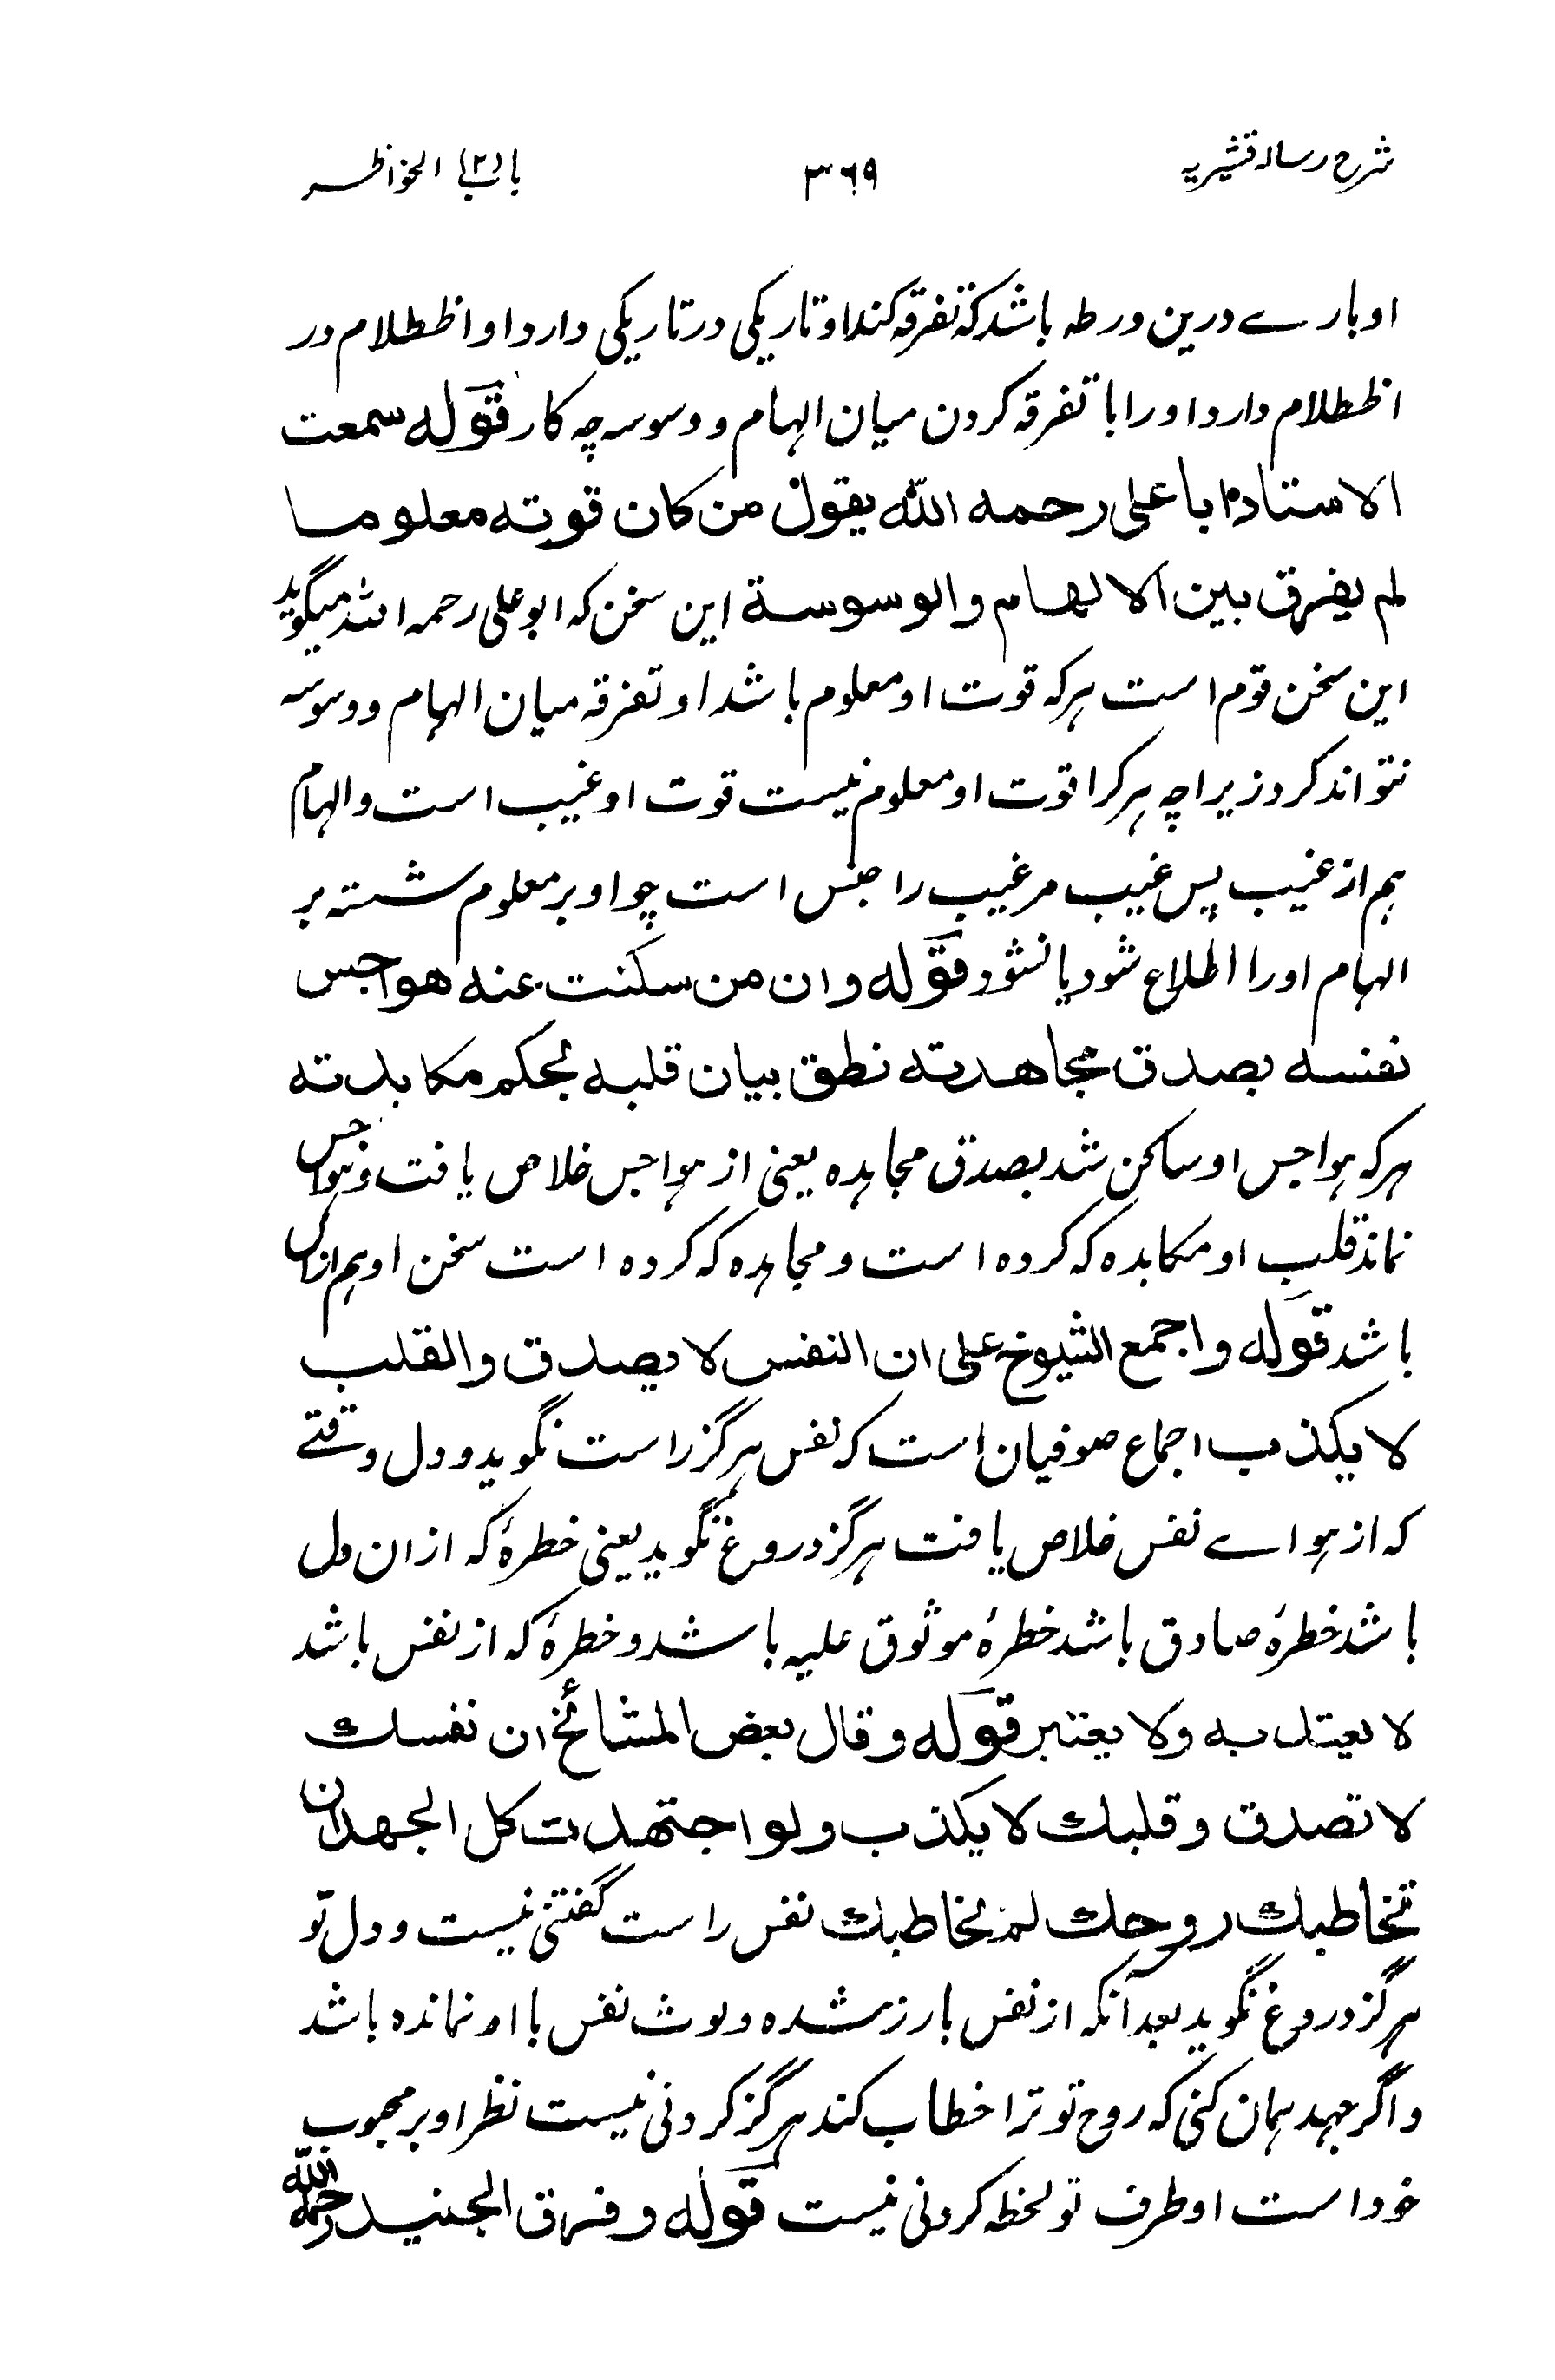 شرح رساله قشیریه
۳۶۹
باب (۲) الخواطر
او بارے درین ورطہ باشد کہ تفرقہ کند او تاریکی در تاریکی دارد او اظطلام در
اظطلام دارد او را با تفرقہ کردن میان الہام و وسوسہ چہ کار قولہ سمعت
الاستاد ابا علی رحمه الله یقول من کان قوته معلوما
لم یفرق بین الالهام والوسوسة این سخن کہ ابو علی رحمہ اللہ میگوید
این سخن قوم است ہر کہ قوت او معلوم باشد او تفرقہ میان الہام و وسوسہ
نتواند کرد زیرا چہ ہر کرا قوت او معلوم نیست قوت او غیب است و الہام
ہم از غیب پس غیب مر غیب را جنس است چو او بر معلوم شستہ بر
الہام او را اطلاع شود یا نشود قولہ وان من سکنت عنه هواجس
نفسه بصدق مجاهدته نطق بیان قلبه بحکم مکابدته
ہر کہ ہواجس او ساکن شد بصدق مجاہدہ یعنی از ہواجس خلاص یافت و ہواجس
نماند قلب او مکابدہ کہ کردہ است و مجاہدہ کہ کردہ است سخن او ہم ازان
باشد قولہ واجمع الشیوخ علی ان النفس لا یصدق والقلب
لا یکذب اجماع صوفیان است کہ نفس ہرگز راست نگوید و دل وقتے
کہ از ہواے نفس خلاص یافت ہرگز دروغ نگوید یعنی خطرۂ کہ ازان دل
باشد خطرۂ صادق باشد خطرۂ موثوق علیہ باشد و خطرۂ کہ از نفس باشد
لا یعتد به ولا یعتبر قولہ وقال بعض المشائخ ان نفسك
لا تصدق وقلبك لا یکذب ولو اجتهدت کل الجهد ان
تخاطبك روحك لم یخاطبك نفس راست گفتنی نیست و دل تو
ہرگز دروغ نگوید بعد آنکہ از نفس بارز شدہ و لوث نفس با او نماندہ باشد
و اگر جہد ہمان کنی کہ روح تو ترا خطاب کند ہرگز کردنی نیست نظر او بر محبوب
خود است او طرف تو لحظہ کردنی نیست قولہ وفرق الجنید رحمه الله